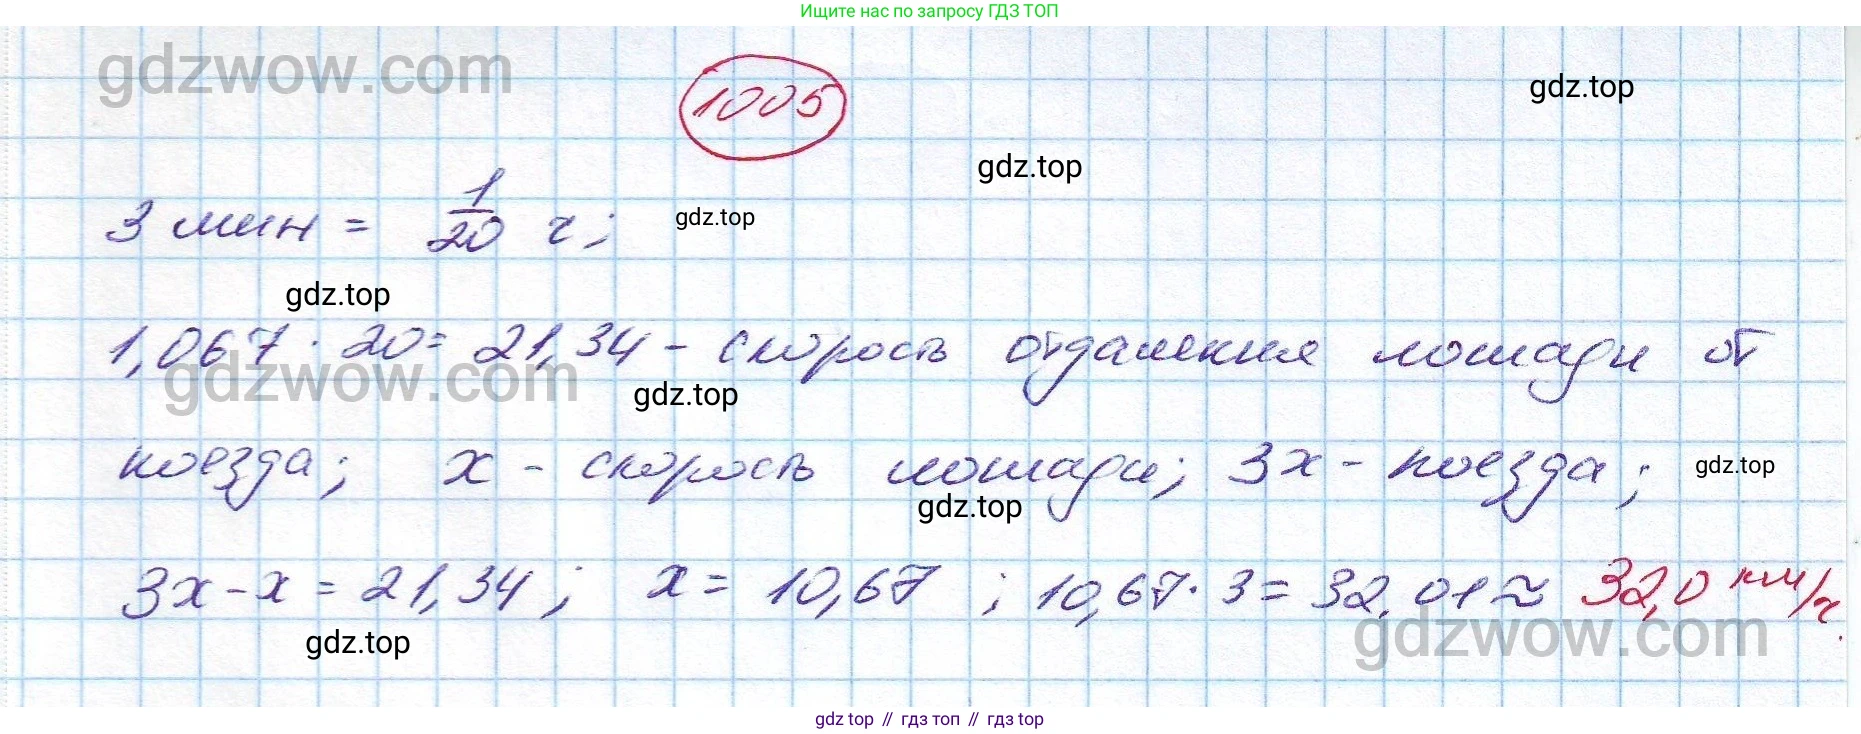 Ищите нас по запросу ГДЗ ТОП
gdzwow.com
1005
gdz.top
gdz.top
3 мин = 1/20 ч;
gdz.top
gdz.top
1,067 · 20 = 21,34 - скорость отдаления лошади от
gdzwow.com
gdz.top
поезда; x - скорость лошади; 3x - поезда;
gdz.top
gdz.top
3x - x = 21,34; x = 10,67; 10,67 · 3 = 32,01 ≈ 32,0 км/ч.
gdz.top
gdzwow.com
gdz top // гдз топ // гдз top